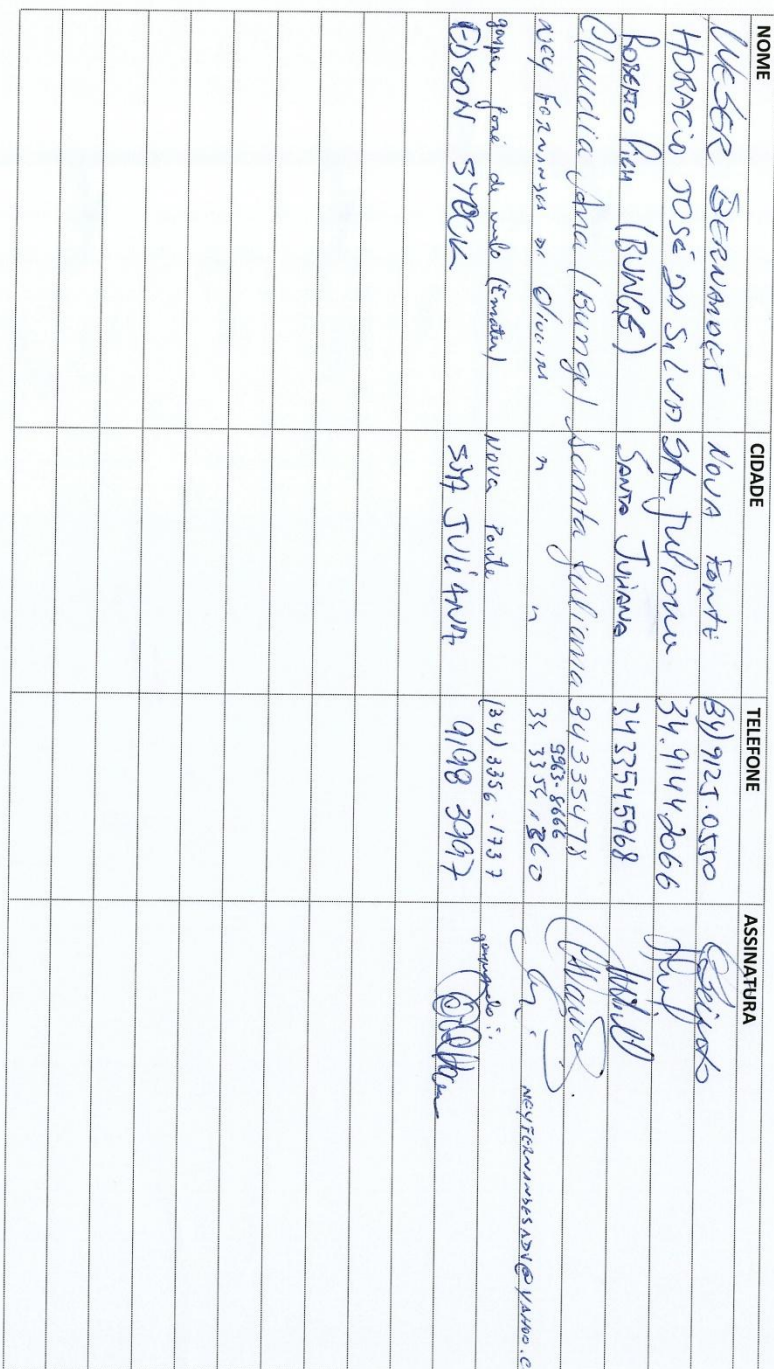 NOME CIDADE TELEFONE ASSINATURA
BERNARDES NOVA Ponte (34) 9125.0550
HORACIO JOSÉ DA SILVA Sta Juliana 34.91442066
ROBERTO (BUNGE) SANTA JULIANA 3433545968
Claudia Ana (Bunge) Santa Juliana 34335478
NEY FERNANDES DE Oliveira " " 9963-8666
34 3354 1360 NEYFERNANDESADV@YAHOO.C
José de melo (Emater) Nova Ponte (34) 3356-1737
EDSON STOCK STA JULIANA 9198 3997